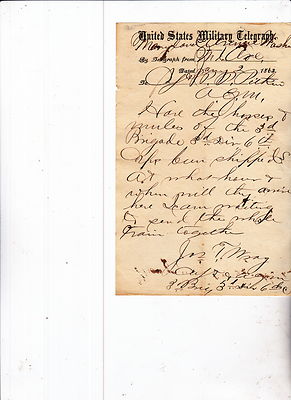 United States Military Telegraph.
Maryland Avenue Wash
By Telegraph from
Dated 186
To
A.Q.M.
Have the horses &
mules of the 3d
Brigade 3d Div 6th
Cps been shipped
At what hour &
when will they arrive
here I am waiting
to send the whole
train together
Jas T. Wray
Capt &
3 Brig 3d Div 6